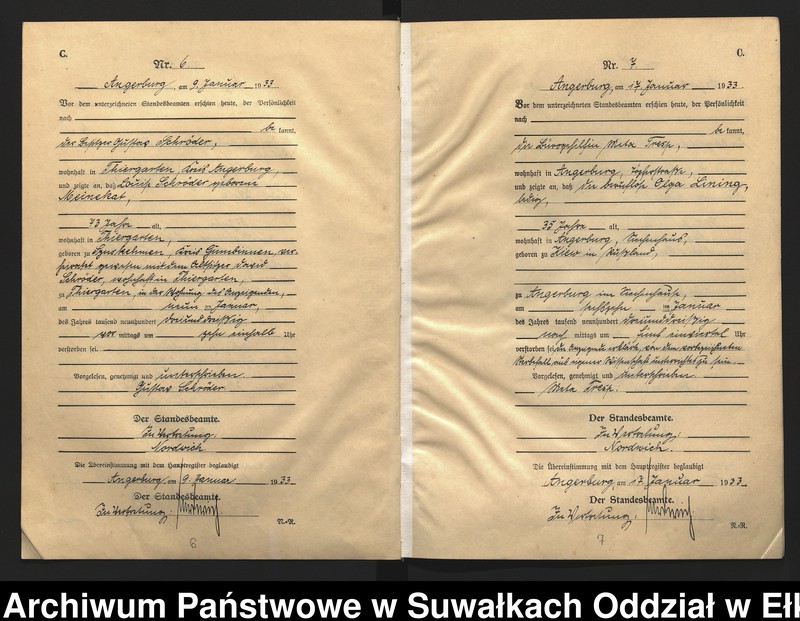 C.
Nr. 6
Angerburg, am 9. Januar 1933
Vor dem unterzeichneten Standesbeamten erschien heute, der Persönlichkeit
nach
be kannt,
der Besitzer Gustav Schröder,
wohnhaft in Thiergarten, Kreis Angerburg,
und zeigte an, daß Louise Schröder geborene
Meinekat,
73 Jahre alt,
wohnhaft in Thiergarten,
geboren zu Kreis Gumbinnen, ver-
heiratet gewesen mit dem Altsitzer David
Schröder, wohnhaft in Thiergarten,
zu Thiergarten, in der Wohnung des Anzeigenden,
am neun ten Januar,
des Jahres tausend neunhundert dreiunddreißig
vor mittags um zehn einhalb Uhr
verstorben sei.
Vorgelesen, genehmigt und unterschrieben
Gustav Schröder
Der Standesbeamte.
In Vertretung.
Nordwich.
Die Übereinstimmung mit dem Hauptregister beglaubigt
Angerburg, am 9. Januar 1933.
Der Standesbeamte.
In Vertretung:
N.-R.
6
C.
Nr. 7
Angerburg, am 17. Januar 1933.
Vor dem unterzeichneten Standesbeamten erschien heute, der Persönlichkeit
nach
be kannt,
die Bürogehilfin Meta Trezp,
wohnhaft in Angerburg,
und zeigte an, daß die berufslose Olga Lining,
ledig,
35 Jahre alt,
wohnhaft in Angerburg, Siechenhaus,
geboren zu Kiew in Rußland,
zu Angerburg im Siechenhause,
am sechszehn ten Januar
des Jahres tausend neunhundert dreiunddreißig
nach mittags um fünf einviertel Uhr
verstorben sei. Die Anzeigende erklärte, von dem vorbezeichneten
Sterbefall aus eigener Wissenschaft unterrichtet zu sein.
Vorgelesen, genehmigt und unterschrieben
Meta Trezp.
Der Standesbeamte.
In Vertretung:
Nordwich.
Die Übereinstimmung mit dem Hauptregister beglaubigt
Angerburg, am 17. Januar 1933.
Der Standesbeamte.
In Vertretung:
N.-R.
7
Archiwum Państwowe w Suwałkach Oddział w Ełk